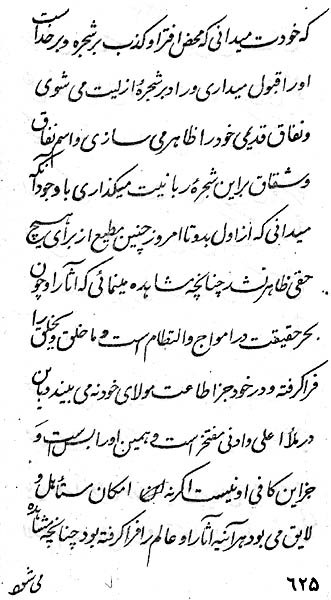 که خودت میدانی که محض افترا و کذب بر شجره و بر خداست
او را قبول میداری و راد بر شجرهٔ ازلیت می شوی
و نفاق قدیمی خود را ظاهر می سازی و اسم نفاق
و شقاق بر این شجرهٔ ربانیت میگذاری با وجود آنکه
میدانی که از اول بدو تا امروز چنین مطیع از برای هیچ
حقی ظاهر نشد چنانچه مشاهده مینمائی که آثار او چون
بحر حقیقت در امواج والتطام است و ما خلق و یخلق را
فرا گرفته و در خود جز اطاعت مولای خود نه می بیند و باین
در ملأ اعلی و ادنی مفتخر است و همین او را بس است و
جز این کافی او نیست اگر نه امکان ستأهل و
لایق می بود هر آینه آثار او عالم را فرا گرفته بود چنانچه مشاهده
۶۲۵
می شود